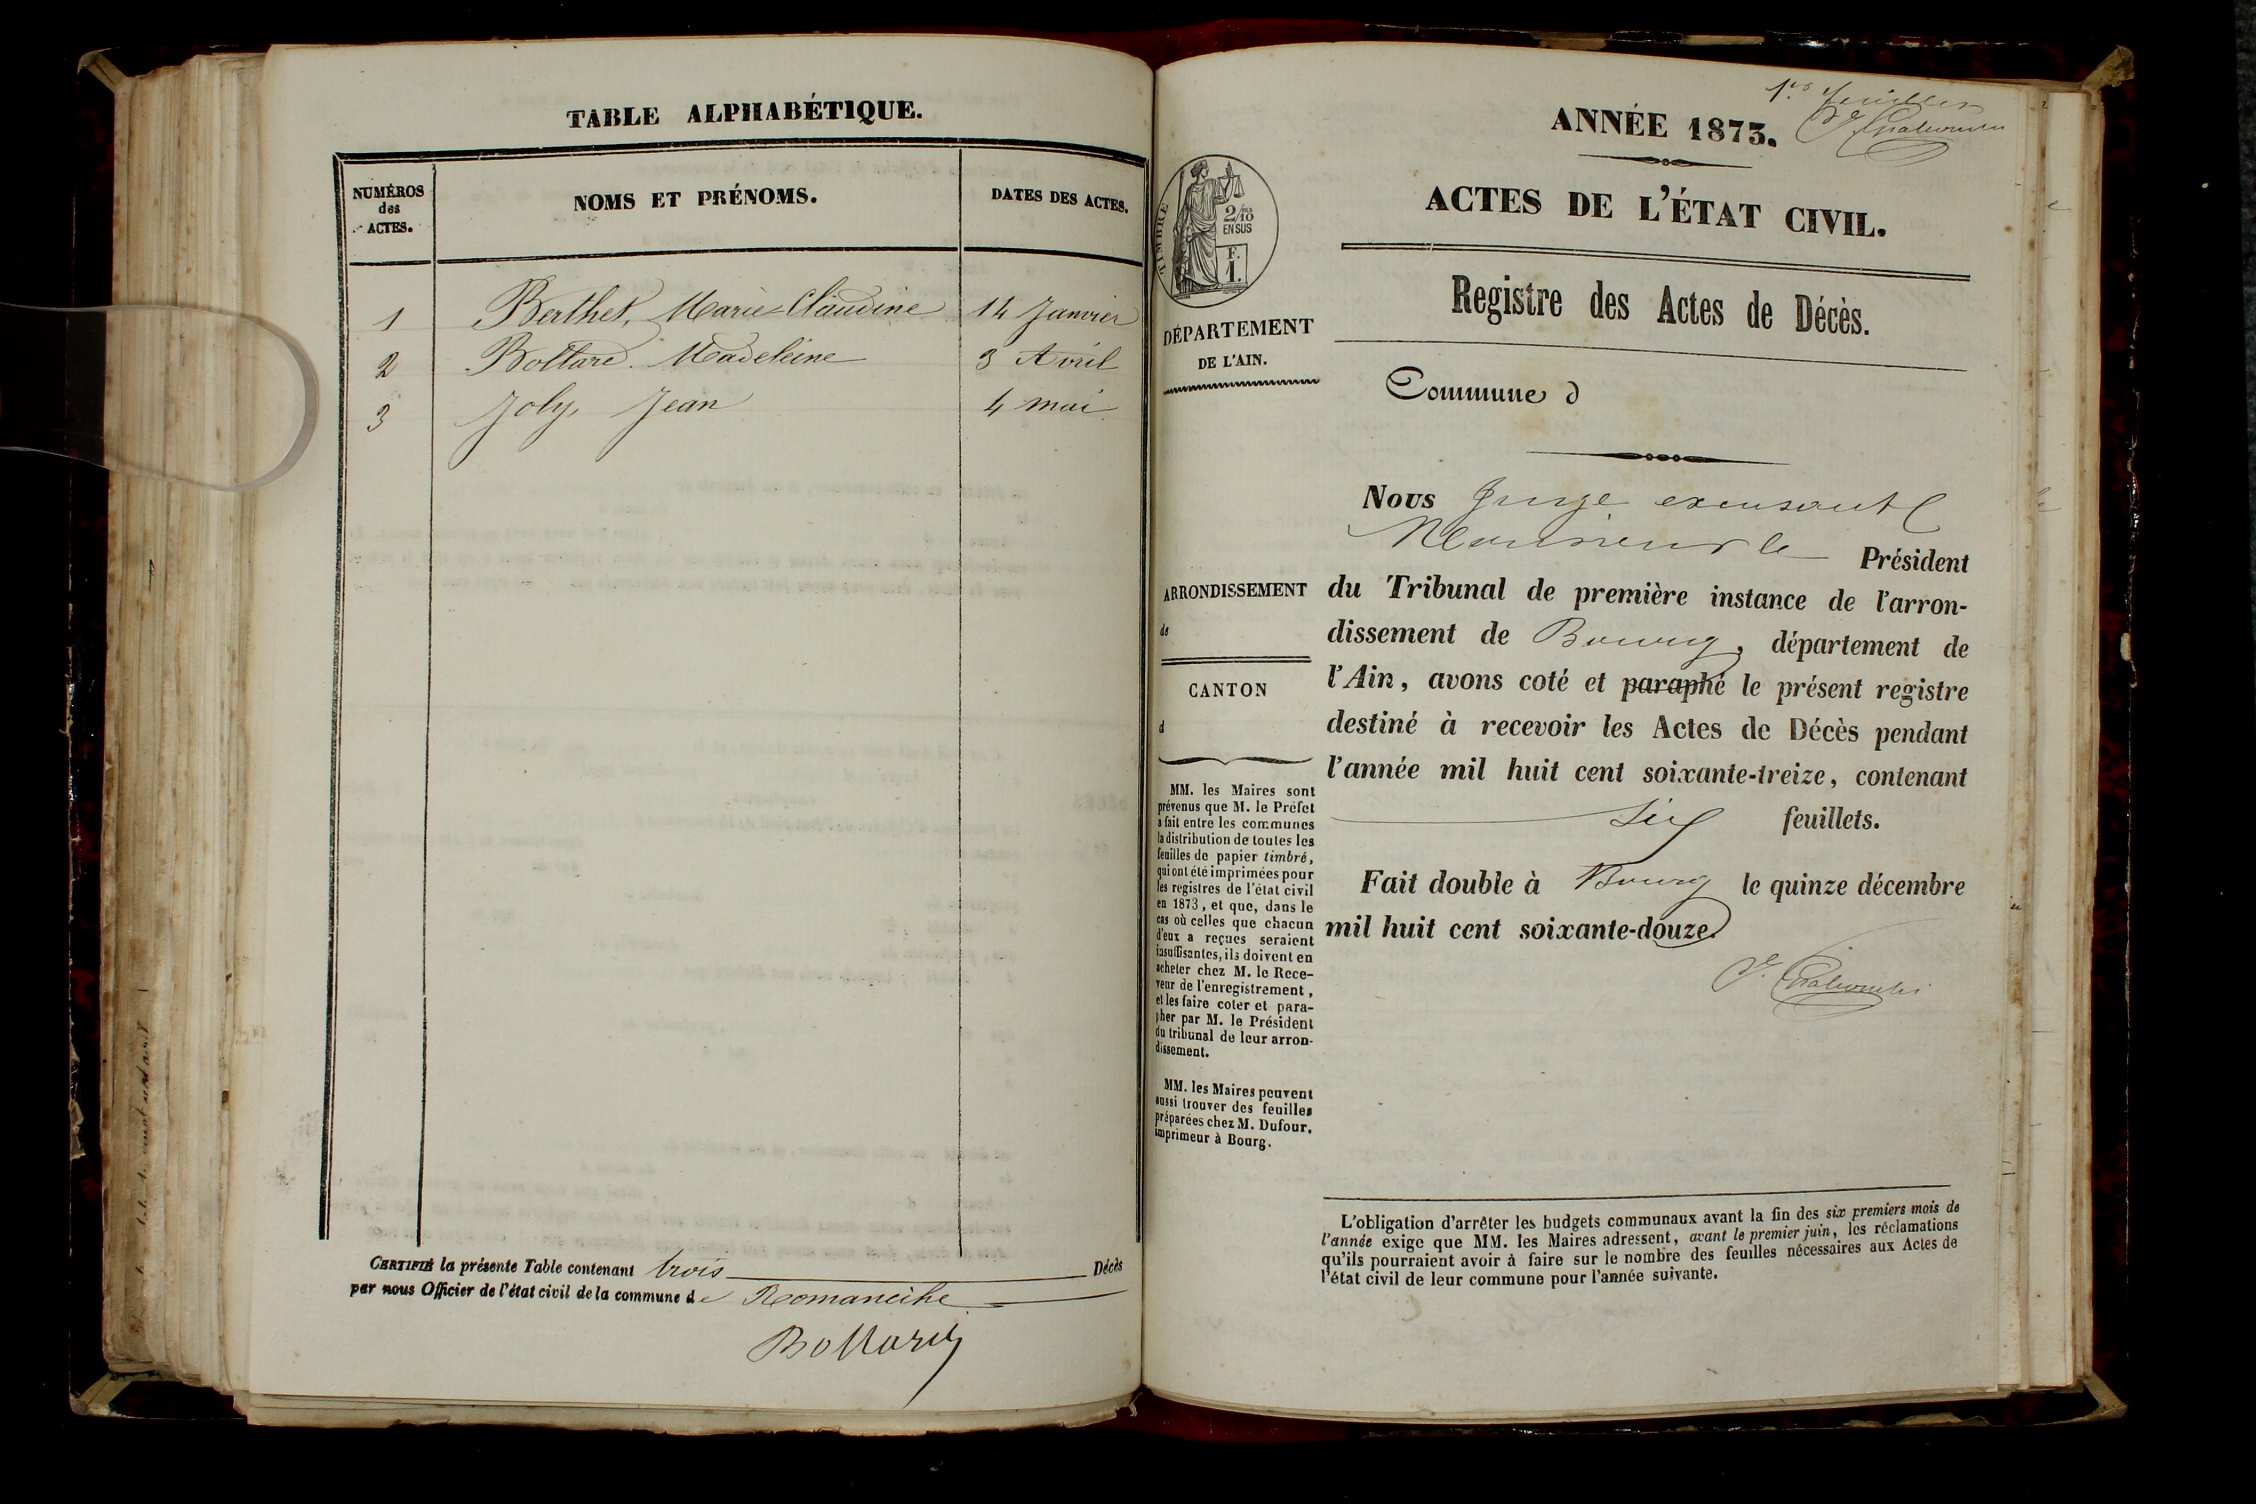 TABLE ALPHABÉTIQUE.
NUMÉROS
des
ACTES.
NOMS ET PRÉNOMS.
DATES DES ACTES.
1 Berthet, Marie-Claudine 14 Janvier
2 Bottard Madeleine 3 Avril
3 Joly, Jean 4 mai
CERTIFIÉ la présente Table contenant trois Décès
par nous Officier de l'état civil de la commune de Romaneche
Bottard
1er feuillet
ANNÉE 1873.
ACTES DE L'ÉTAT CIVIL.
TIMBRE
2/10
EN SUS
F.
1.
Registre des Actes de Décès.
DÉPARTEMENT
DE L'AIN.
Commune d
Nous Juge
Monsieur le Président
ARRONDISSEMENT
de
du Tribunal de première instance de l'arron-
dissement de Bourg, département de
l'Ain, avons coté et paraphé le présent registre
destiné à recevoir les Actes de Décès pendant
l'année mil huit cent soixante-treize, contenant
six feuillets.
Fait double à Bourg le quinze décembre
mil huit cent soixante-douze.
CANTON
d
MM. les Maires sont
prévenus que M. le Préfet
a fait entre les communes
la distribution de toutes les
feuilles de papier timbré,
qui ont été imprimées pour
les registres de l'état civil
en 1873, et que, dans le
cas où celles que chacun
d'eux a reçues seraient
insuffisantes, ils doivent en
acheter chez M. le Rece-
veur de l'enregistrement,
et les faire coter et para-
pher par M. le Président
du tribunal de leur arron-
dissement.
MM. les Maires peuvent
aussi trouver des feuilles
préparées chez M. Dufour,
imprimeur à Bourg.
L'obligation d'arrêter les budgets communaux avant la fin des six premiers mois de
l'année exige que MM. les Maires adressent, avant le premier juin, les réclamations
qu'ils pourraient avoir à faire sur le nombre des feuilles nécessaires aux Actes de
l'état civil de leur commune pour l'année suivante.